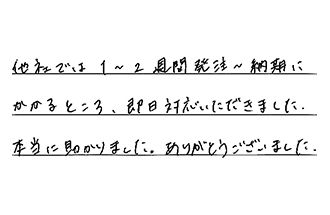 他社では 1～2週間発注～納期に
かかるところ、即日対応いただきました.
本当に助かりました。ありがとうございました.